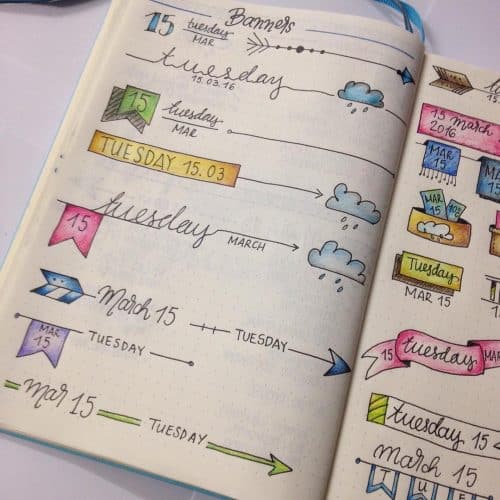 Banners
15 tuesday
MAR
tuesday
15.03.16
15 tuesday
MAR
TUESDAY 15.03
15 tuesday MARCH
March 15 TUESDAY
MAR
15 TUESDAY
Mar 15 TUESDAY
15
15 march
2016
MAR
15
MAR
15
MAR
15
Tuesday
MAR 15
15 tuesday MAR
tuesday 15
march 15
T U E